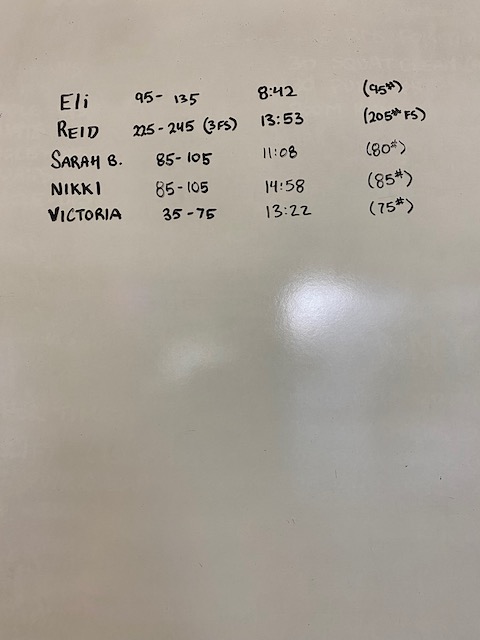 Eli 95-135 8:42 (95#)
REID 225-245 (3FS) 13:53 (205# FS)
SARAH B. 85-105 11:08 (80#)
NIKKI 85-105 14:58 (85#)
VICTORIA 35-75 13:22 (75#)